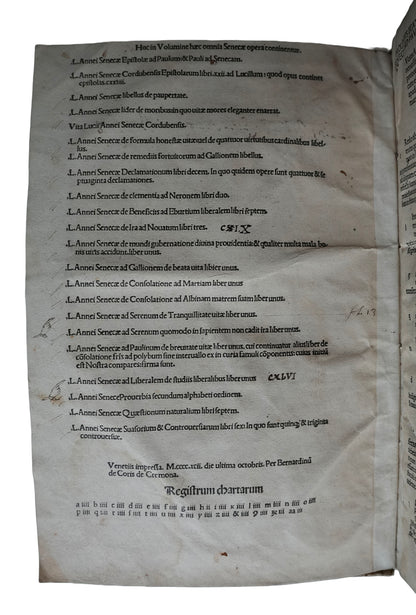 Hoc in Volumine hæc omnia Senecæ opera continentur.
.L. Annei Senecæ Epistolæ ad Paulum & Pauli ad Senecam.
.L. Annei Senecæ Cordubensis Epistolarum libri.xxii ad Lucillum: quod opus continet
epistolas.cxxiiii.
.L. Annei Senecæ libellus de paupertate.
.L. Annei Senecæ liber de moribus in quo uitæ mores eleganter enarrat.
Vita Lucii Annei Senecæ Cordubensis.
.L. Annei Senecæ de formula honestæ uitæ uel de quatuor uirtutibus cardinalibus libel-
lus.
.L. Annei Senecæ de remediis fortuitorum ad Gallionem libellus.
.L. Annei Senecæ Declamationum libri decem. In quo quidem opere sunt quatuor & se
ptuaginta declamationes.
.L. Annei Senecæ de clementia ad Neronem libri duo.
.L. Annei Senecæ de Beneficiis ad Ebutium liberalem libri septem.
.L. Annei Senecæ de Ira ad Nouatum libri tres.
.L. Annei Senecæ de mundi gubernatione diuina prouidentia & qualiter multa mala bo
nis uiris accidunt liber unus.
.L. Annei Senecæ ad Gallionem de beata uita liber unus.
.L. Annei Senecæ de Consolatione ad Martiam liber unus
.L. Annei Senecæ de Consolatione ad Albinam matrem suam liber unus.
.L. Annei Senecæ ad Serenum de Tranquilitate uitæ liber unus.
.L. Annei Senecæ ad Serenum quomodo in sapientem non cadit ira liber unus.
.L. Annei Senecæ ad Paulinum de breuitate uitæ liber unus, cui continuatur alius liber de
cõsolatione fr̃is ad polybum sine interuallo ex incuria famulorum cõponentis: cuius initiũ
est Nostra compares: firma sunt.
.L. Annei Senecæ ad Liberalem de studiis liberalibus liber unus CXLVI
.L. Annei Senecæ Prouerbia secundum alphabeti ordinem.
.L. Annei Senecæ Quæstionum naturalium libri septem.
.L. Annei Senecæ Suasoriũ & Controuersiarum libri sex: In quo sunt quinq; & triginta
controuersiæ.
Venetiis impressa. M.cccc.xcii. die ultima octobris. Per Bernardinũ
de Coris de Cremona.
Registrum chartarum